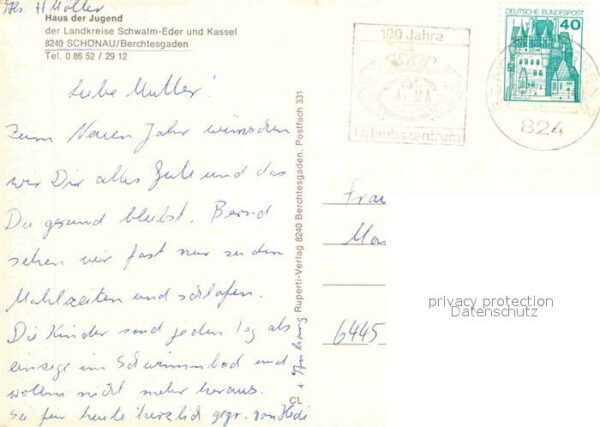 Abs. H Möller
Haus der Jugend
der Landkreise Schwalm-Eder und Kassel
8240 SCHÖNAU/Berchtesgaden
Tel. 0 86 52 / 29 12
Liebe Mutter!
Zum Neuen Jahr wünschen
wir Dir alles Gute und das
Du gesund bleibst. Bernd
sehen wir fast nur zu den
Mahlzeiten und schlafen.
Die Kinder sind jeden Tag als
einzige im Schwimmbad und
wollen nicht mehr heraus.
So für heute herzlich gegr. von Heidi
+ Anhang
CL
Ruperti-Verlag 8240 Berchtesgaden, Postfach 331
100 Jahre
Urlaubszentrum
DEUTSCHE BUNDESPOST
40
824
Frau
6445
privacy protection
Datenschutz